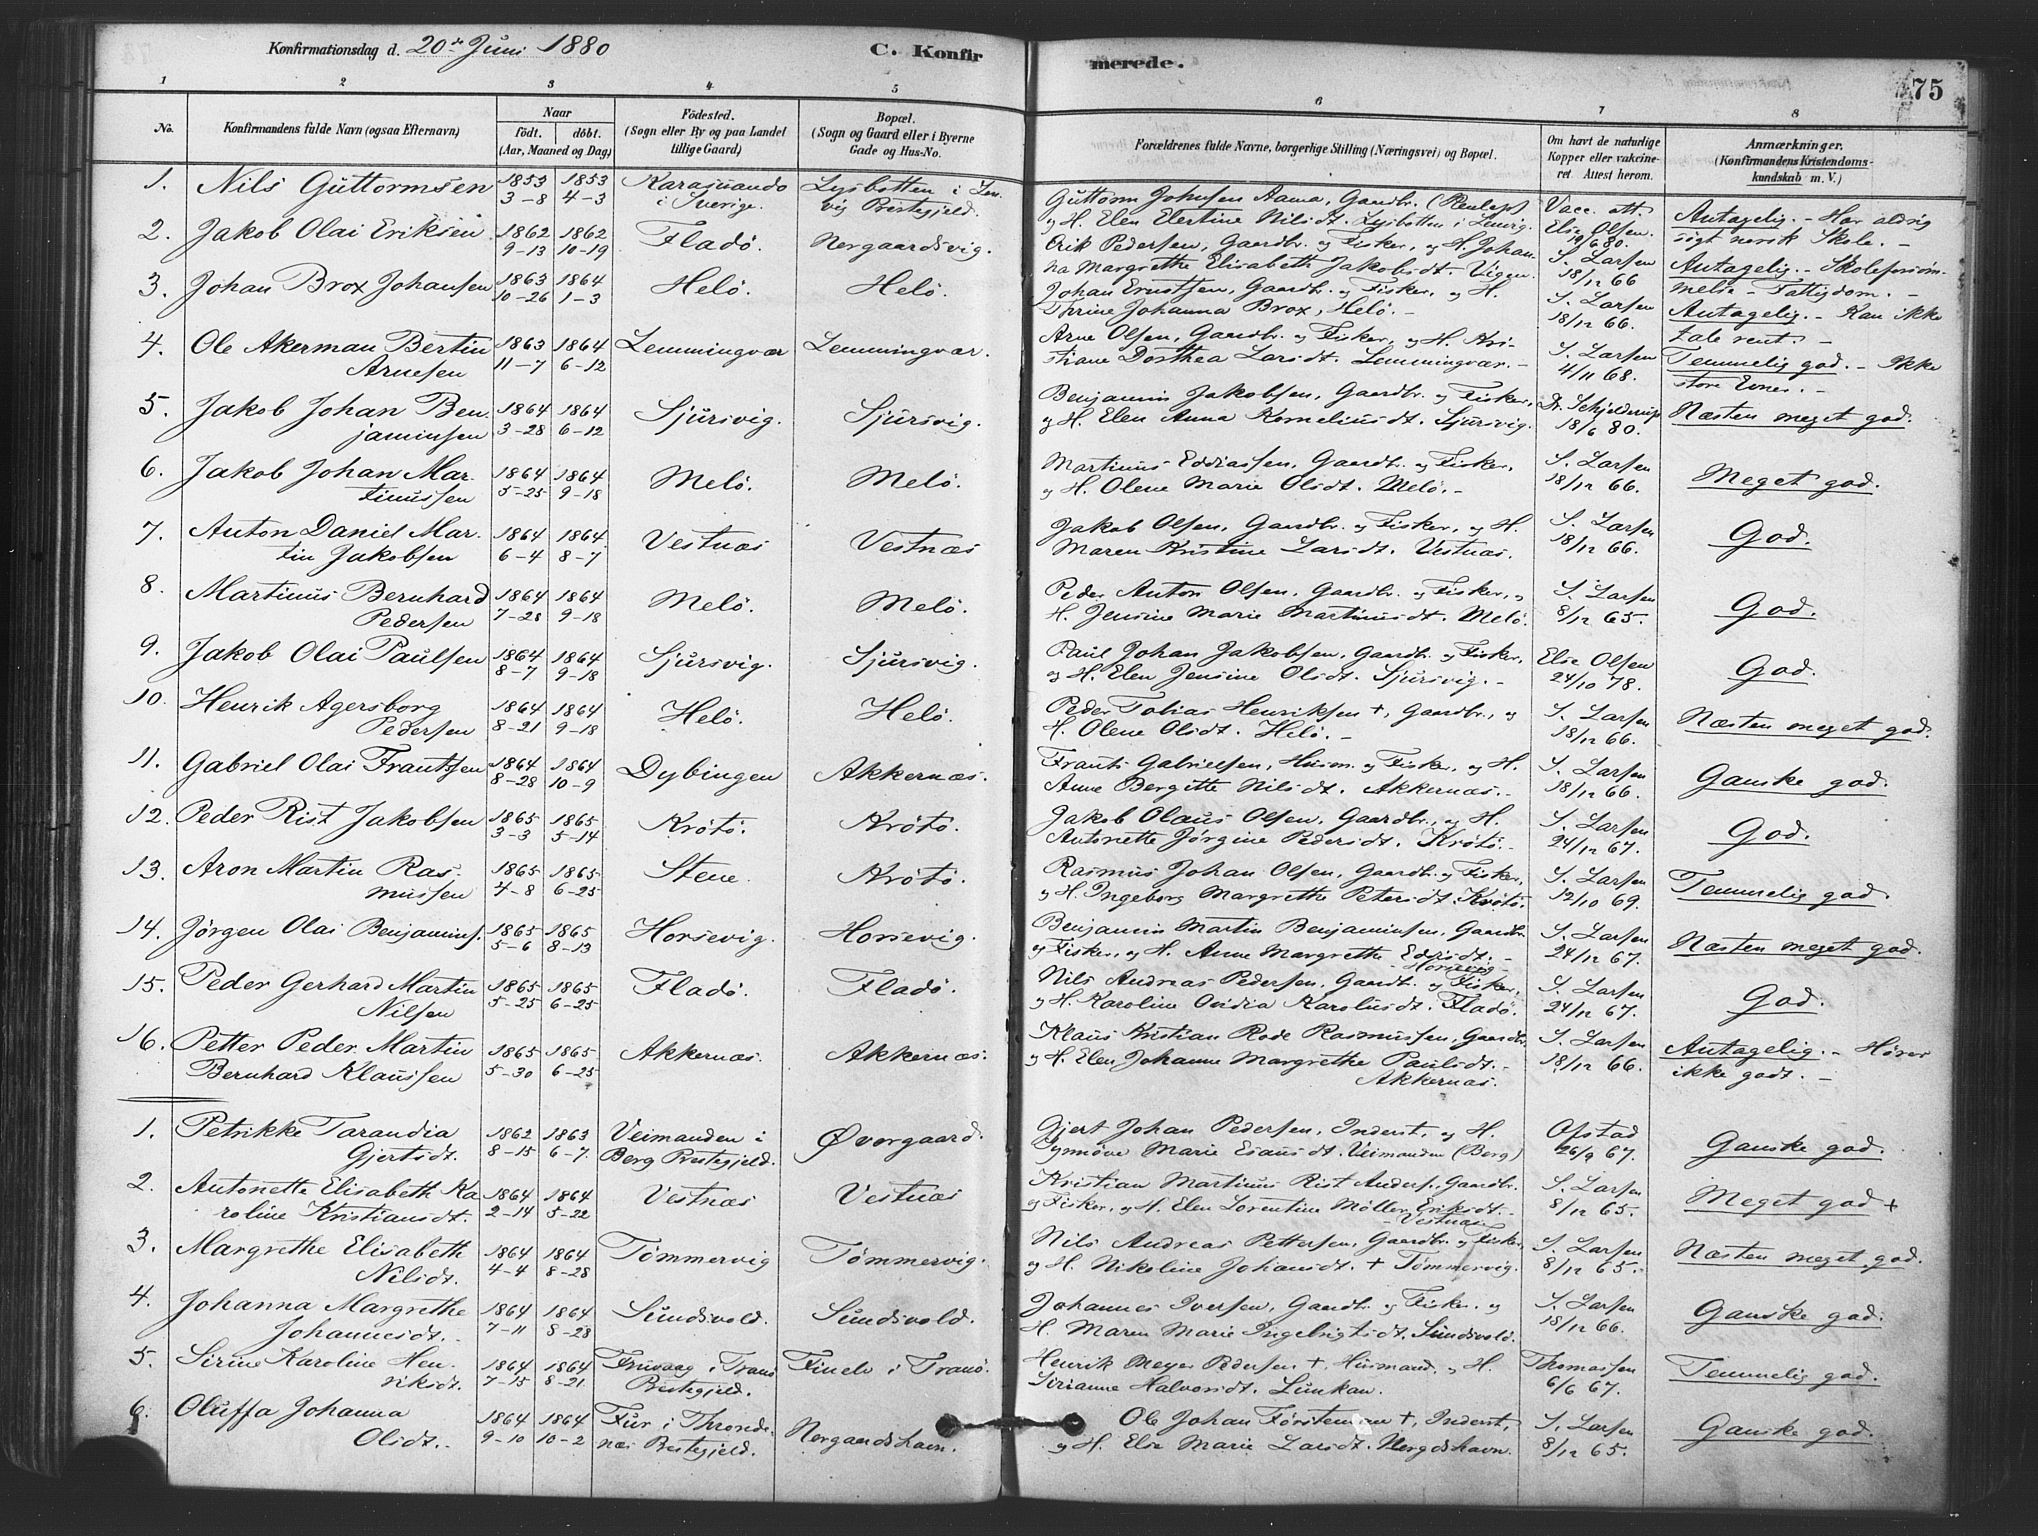 Konfirmationsdag d. 20de Juni 1880
C. Konfirmerede.
75
1 2 3 4 5 6 7 8
No.
Konfirmandens fulde Navn (ogsaa Efternavn)
Naar
födt. döbt.
(Aar, Maaned og Dag)
Födested.
(Sogn eller By og paa Landet
tillige Gaard)
Bopæl.
(Sogn og Gaard eller i Byerne
Gade og Hus-No.
Forældrenes fulde Navne, borgerlige Stilling (Næringsvei) og Bopæl.
Om havt de naturlige
Kopper eller vakcine-
ret. Attest herom.
Anmærkninger.
(Konfirmandens Kristendoms-
kundskab m. V.)
1. Nils Guttormsen 1853 1853 Karasuando Lysbotten i Len-
3-8 4-3 i Sverige. vig Prestegjeld.
Guttorm Johnsen Aama, Gaardbr. (Renlap) Vacc. att.
og H. Elen Elertine Nilsdt. Lysbotten i Lenvig. Else Olsen. 19/6 80.
Antagelig. - Har aldrig
søgt norsk Skole. -
2. Jakob Olai Eriksen 1862 1862 Fladö. Nergaardsvig.
9-13 10-19
Erik Pedersen, Gaardbr. og Fisker, og H. Johan- S. Larsen
na Margrethe Elisabeth Jakobsdt. Vigen. 18/12 66
Antagelig. - Skoleforsöm-
melse. Fattigdom. -
3. Johan Brox Johansen 1863 1864 Helö. Helö.
10-26 1-3
Johan Erntsen, Gaardbr. og Fisker, og H. S. Larsen
Thrine Johanna Brox, Helö. - 18/12 66.
Antagelig. - Kan ikke
tale rent. -
4. Ole Akerman Bertin 1863 1864 Lemmingvær Lemmingvær.
Arnesen 11-7 6-12
Arne Olsen, Gaardbr. og Fisker, og H. Kri- S. Larsen
stiane Dorthea Larsdt. Lemmingvær. - 4/11 68.
Temmelig god. - Ikke
store Evner. -
5. Jakob Johan Ben- 1864 1864 Sjursvig. Sjursvig.
jaminsen 3-28 6-12
Benjamin Jakobsen, Gaardbr. og Fisker, Dr. Schjelderup
og H. Elen Anna Korneliusdt. Sjursvig. 18/6 80.
Næsten meget god.
6. Jakob Johan Mar- 1864 1864 Melö. Melö.
tinussen 5-25 9-18
Martinus Eddiassen, Gaardbr. og Fisker, S. Larsen
og H. Olene Marie Olsdt. Melö. - 18/12 66.
Meget god.
7. Anton Daniel Mar- 1864 1864 Vestnæs Vestnæs
tin Jakobsen 6-4 8-7
Jakob Olsen, Gaardbr. og Fisker, og H. S. Larsen
Maren Kristine Larsdt. Vestnæs. 18/12 66.
God.
8. Martinus Bernhard 1864 1864 Melö. Melö.
Pedersen 7-28 9-18
Peder Anton Olsen, Gaardbr. og Fisker, og S. Larsen
H. Jensine Marie Martinusdt. Melö. 8/12 65.
God.
9. Jakob Olai Paulsen 1864 1864 Sjursvig. Sjursvig.
8-7 9-18
Paul Johan Jakobsen, Gaardbr. og Fisker, Else Olsen
og H. Elen Jensine Olsdt. Sjursvig. - 24/10 78.
God.
10. Henrik Agersborg 1864 1864 Helö. Helö.
Pedersen 8-21 9-18
Peder Tobias Henriksen +, Gaardbr., og S. Larsen
H. Olene Olsdt. Helö. - 18/12 66.
Næsten meget god.
11. Gabriel Olai Frantzen 1864 1864 Dybingen Akkernæs.
8-28 10-9
Frants Gabrielsen, Husm. og Fisker, og H. S. Larsen
Anne Bergitte Nilsdt. Akkernæs. - 18/12 66.
Ganske god.
12. Peder Rist Jakobsen 1865 1865 Krötö. Krötö.
3-3 5-14
Jakob Olaus Olsen, Gaardbr., og H. S. Larsen
Antonette Jörgine Pedersdt. Krötö. - 24/12 67.
God.
13. Aron Martin Ras- 1865 1865 Stene. Krötö.
mussen 4-8 6-25
Rasmus Johan Olsen, Gaardbr. og Fisker, S. Larsen
og H. Ingeborg Margrethe Petersdt. Krötö. 12/10 69.
Temmelig god.
14. Jörgen Olai Benjamins. 1865 1865 Horsevig. Horsevig.
5-6 8-13
Benjamin Martin Benjaminsen, Gaardbr. S. Larsen
og Fisker, og H. Anne Margrethe Edisdt. - Horsevig 24/12 67.
Næsten meget god.
15. Peder Gerhard Martin 1865 1865 Fladö. Fladö.
Nilsen 5-25 6-25
Nils Andreas Pedersen, Gaardbr. og Fisker, S. Larsen
og H. Karoline Ovidia Karolusdt. Fladö. 24/12 67.
God.
16. Petter Peder Martin 1865 1865 Akkernæs. Akkernæs.
Bernhard Klaussen 5-30 6-25
Klaus Kristian Rode Rasmussen, Gaardbr. S. Larsen
og H. Elen Johanne Margrethe Paulsdt. - 18/12 66.
Akkernæs.
Antagelig. - Hörer
ikke godt. -
1. Petrikke Tarandia 1862 1863 Veimanden i Øvergaard.
Gjertsdt. 8-15 6-7. Berg Prestegjeld.
Gjert Johan Pedersen, Inderst, og H. Ofstad
Synnöve Marie Esausdt. Veimanden (Berg) 26/9 67.
Ganske god.
2. Antonette Elisabeth Ka- 1864 1864 Vestnæs Vestnæs
roline Kristiansdt. 2-14 5-22
Kristian Martinus Rist Anders. Gaardbr. S. Larsen
og Fisker, og H. Elen Lorentine Möller Eriksdt. - Vestnæs 8/12 65.
Meget god +
3. Margrethe Elisabeth 1864 1864 Tömmervig Tömmervig.
Nilsdt. 4-4 8-28
Nils Andreas Pettersen, Gaardbr. og Fisker, S. Larsen
og H. Nikoline Johansdt. + Tömmervig. 8/12 65.
Næsten meget god.
4. Johanna Margrethe 1864 1864 Sundsvold. Sundsvold.
Johannesdt. 7-11 8-28
Johannes Iversen, Gaardbr. og Fisker, og S. Larsen
H. Maren Marie Ingebrigtsdt. Sundsvold. 18/12 66.
Ganske god.
5. Sirine Karoline Hen- 1864 1864 Frovaag i Tranö i Tranö.
riksdt. 7-15 8-21. Prestegjeld.
Henrik Meyer Pedersen +, Husmand, og H. Thomassen
Sirianne Halvorsdt. Lunkan. 6/6 67.
Temmelig god.
6. Oluffa Johanna 1864 1864 Fur i Thronde- Nergaardshavn.
Olsdt. - 9-10 10-2 næs Prestegjeld.
Ole Johan Förstermann +, Inderst, S. Larsen
og H. Else Marie Larsdt. Nergdshavn. 8/12 65.
Ganske god.